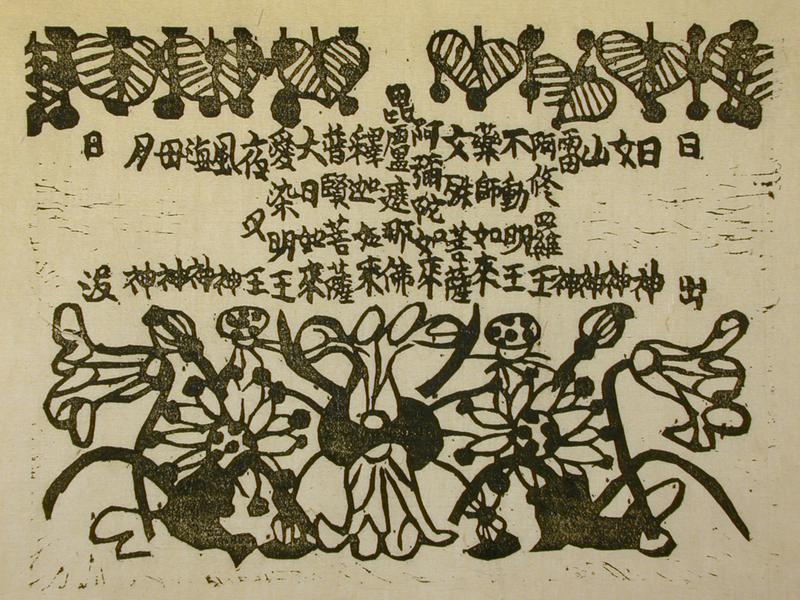 日出
日神
女神
山神
雷神
阿修羅王
不動明王
藥師如來
文殊菩薩
阿彌陀如來
毘盧遮那佛
釋迦如來
普賢菩薩
大日如來
愛染明王
夜叉王
風神
海神
母神
月神
日没